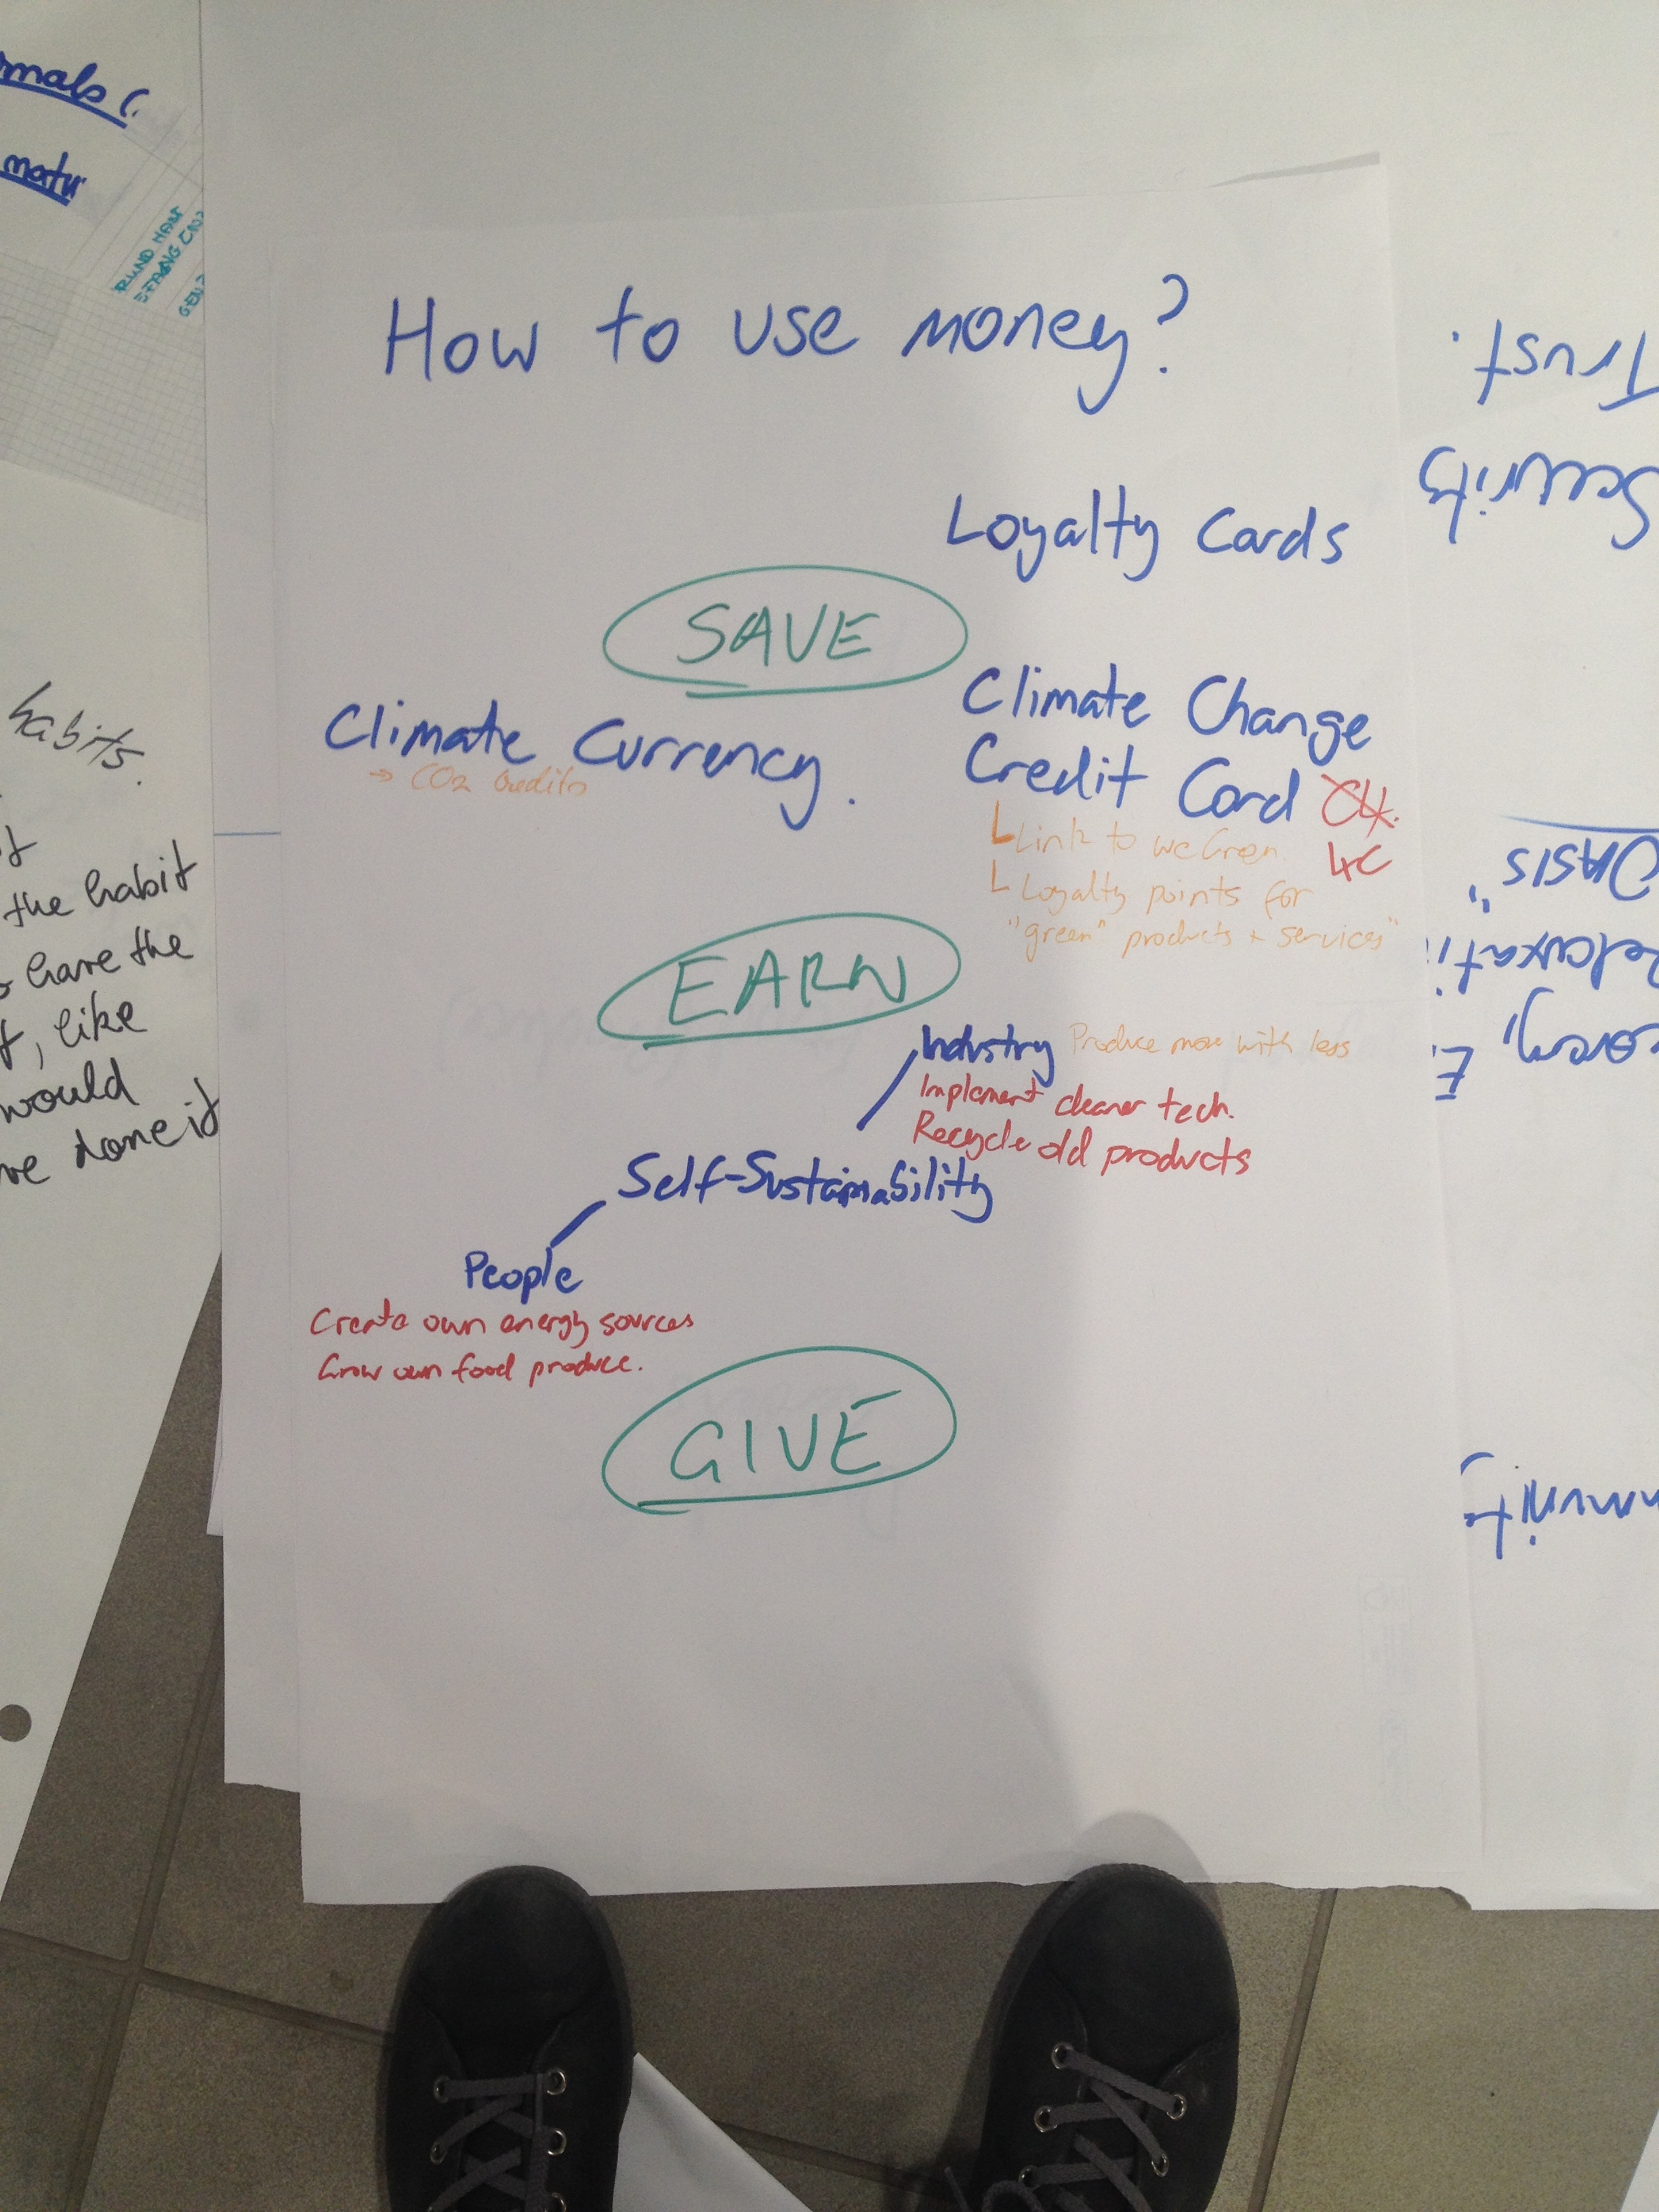 How to use money?
Loyalty Cards
SAVE
Climate Currency.
→ CO2 Credits
Climate Change
Credit Card
4C
Link to weGreen
Loyalty points for
"green" products + services"
EARN
Industry Produce more with less
Implement cleaner tech.
Recycle old products
Self-Sustainability
People
Create own energy sources
Grow own food produce.
GIVE
habits.
the habit
have the
, like
would
done it
Trust.
Security
OASIS"